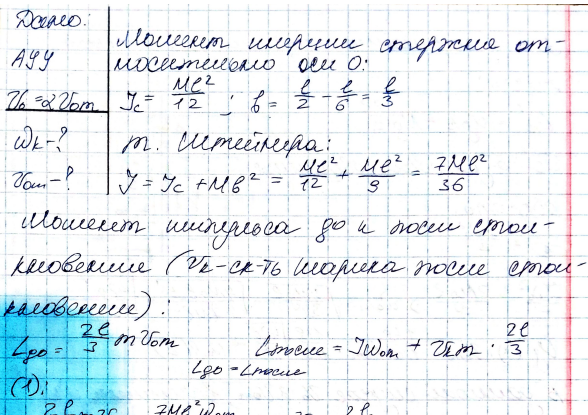 Дано:
АУУ
V₀ = 2V₀m
ωк - ?
V₀m - ?
Момент инерции стержня от-
носительно оси О:
Jc = Ml²/12 ; b = l/2 - l/6 = l/3
т. Штейнера:
J = Jc + Mb² = Ml²/12 + Ml²/9 = 7Ml²/36
Момент импульса до и после стол-
кновение (Vк-ск-ть шарика после стол-
кновение):
Lдо = 2l/3 mV₀m Lпосле = Jω₀m + Vкm · 2l/3
Lдо = Lпосле
(1):